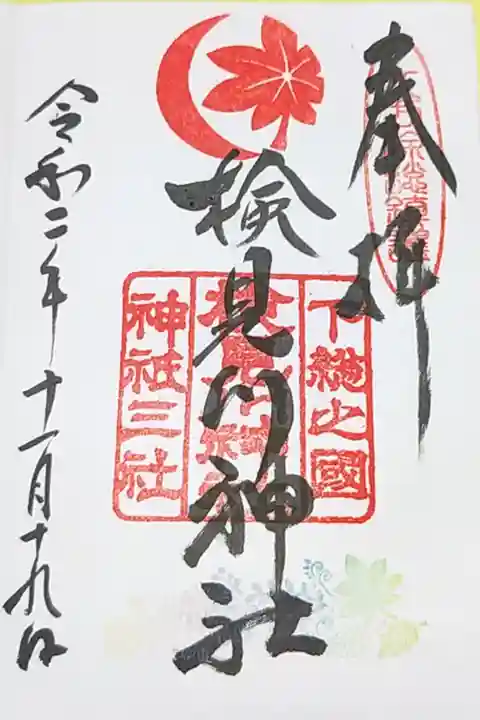 奉拝
検見川神社
下総之國
神祇三社
令和二年十一月十九日